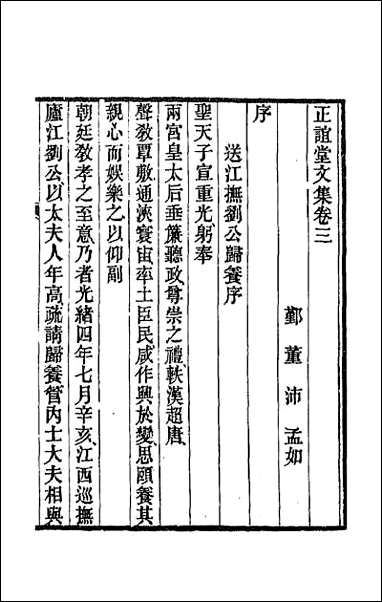 正誼堂文集卷三
鄞董沛孟如
序
送江撫劉公歸養序
聖天子宣重光躬奉
兩宮皇太后垂簾聽政尊崇之禮軼漢超唐
聲敎覃敷通浹寰宙率土臣民咸作興於變思頤養其
親心而娛樂之以仰副
朝廷敎孝之至意乃者光緒四年七月辛亥江西巡撫
廬江劉公以太夫人年高疏請歸養管內士大夫相與